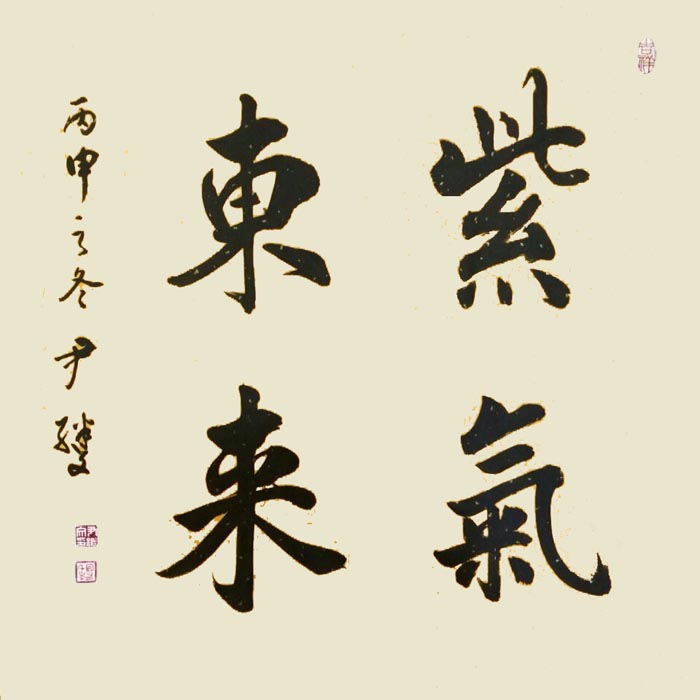 吉祥
紫氣
東来
丙申之冬尹